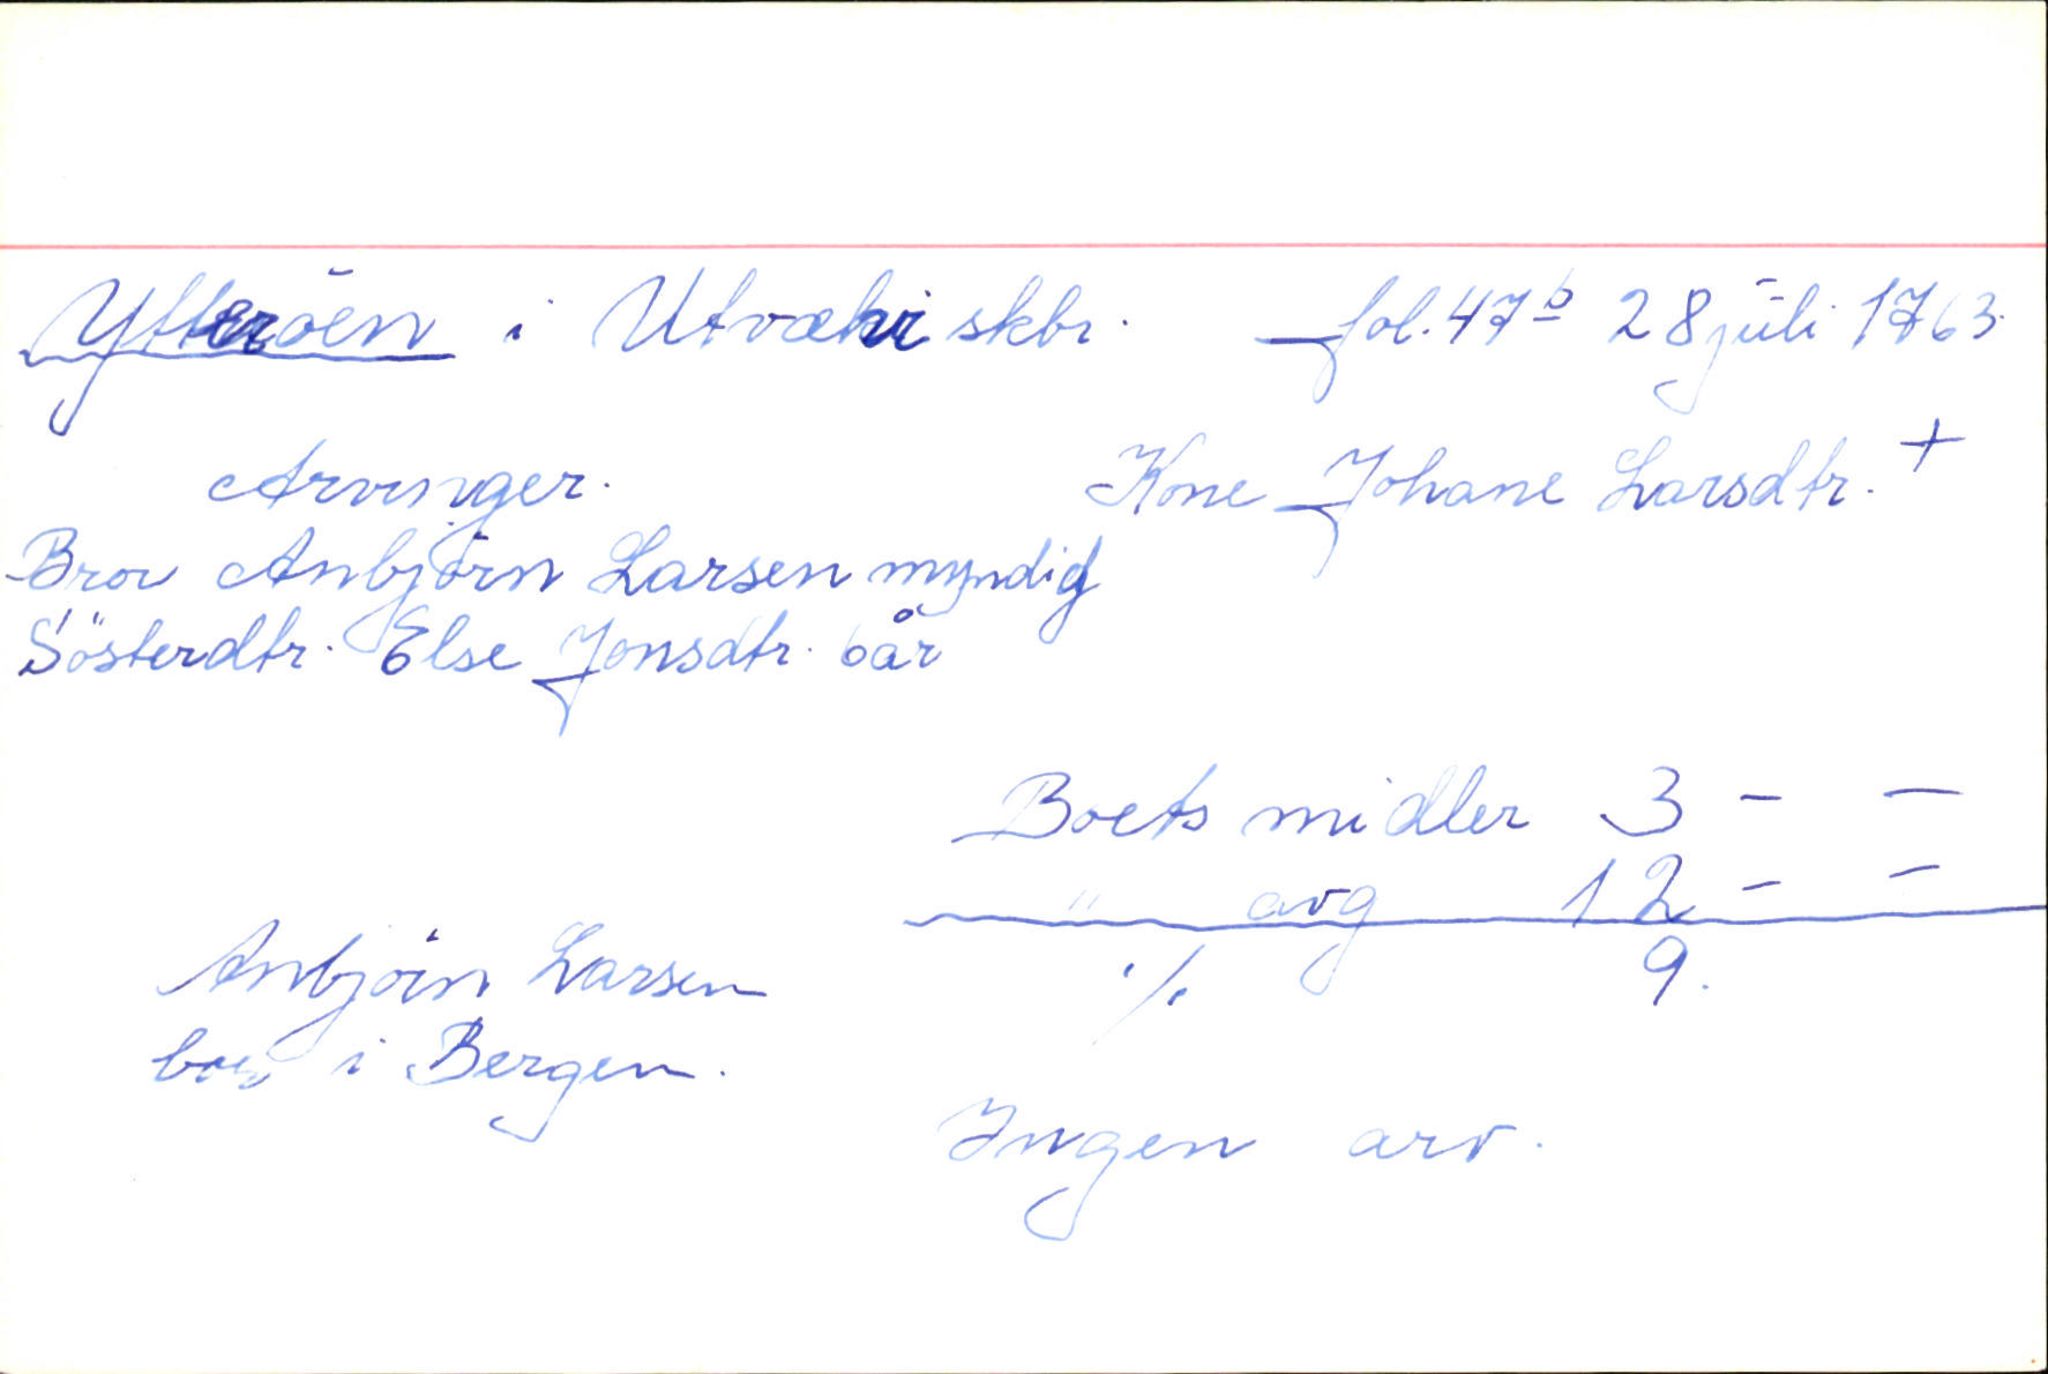 Ytterøen i Utvær skbr. fol. 47b 28 juli 1763.
Arvinger. Kone Johane Larsdtr. +
Bror Anbjörn Larsen myndig
Sösterdtr. Else Jonsdtr. 6 år
Boets midler 3 - -
" avg 12 - -
Anbjörn Larsen ./. 9.
bor i Bergen.
Ingen arv.